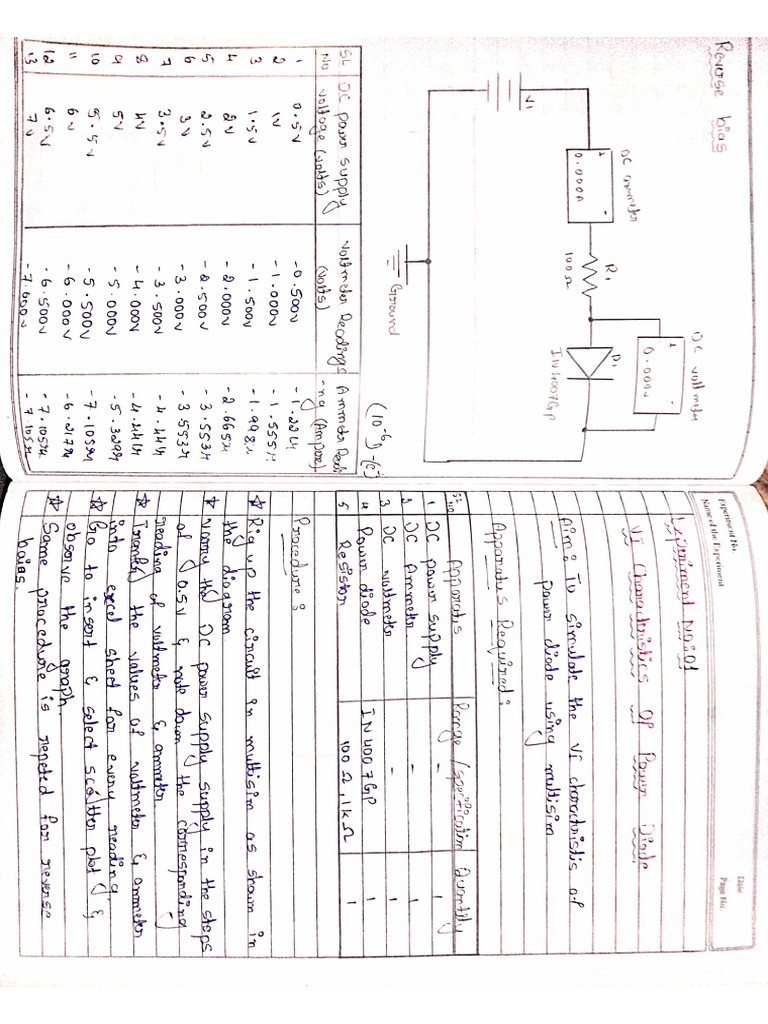 Reverse bias
V1
DC ammeter
+ -
0.000A
R1
100Ω
DC voltmeter
+ -
0.000V
D1
IN4007GP
Ground
(10⁻⁶)
SL No DC power supply voltage (volts) Voltmeter Readings (volts)
1 0.5V -0.500V
2 1V -1.000V -1.555μ
3 1.5V -1.500V -1.998μ
4 2V -2.000V -2.665μ
5 2.5V -2.500V -3.553μ
6 3V -3.000V -3.553μ
7 3.5V -3.500V -4.441μ
8 4V -4.000V -4.441μ
9 5V -5.000V -5.329μ
10 5.5V -5.500V -7.105μ
11 6V -6.000V -6.217μ
12 6.5V -6.500V -7.105μ
13 7V -7.105μ
Experiment No.
Date
Name of the Experiment
Page No.
Experiment No:01
VI Characteristics Of Power Diode
Aim: To simulate the VI charactristic of
power diode using multisim
Apparatus Required:
Sl no Apparatus Range/specification Quantity
1 DC power supply - 1
2 DC Ammeter - 1
3 DC voltmeter - 1
4 Power diode IN4007GP 1
5 Resistor 100Ω, 1kΩ 1
Procedure:
Rig up the circuit in multisim as shown in
the diagram
the DC power supply in the steps
of 0.5V & note down the corresponding
reading of voltmeter & ammeter
the values of voltmeter & ammeter
into excel sheet for every reading.
Go to insert & select plot &
observe the graph.
Same procedure is repeted for reverse
baias.